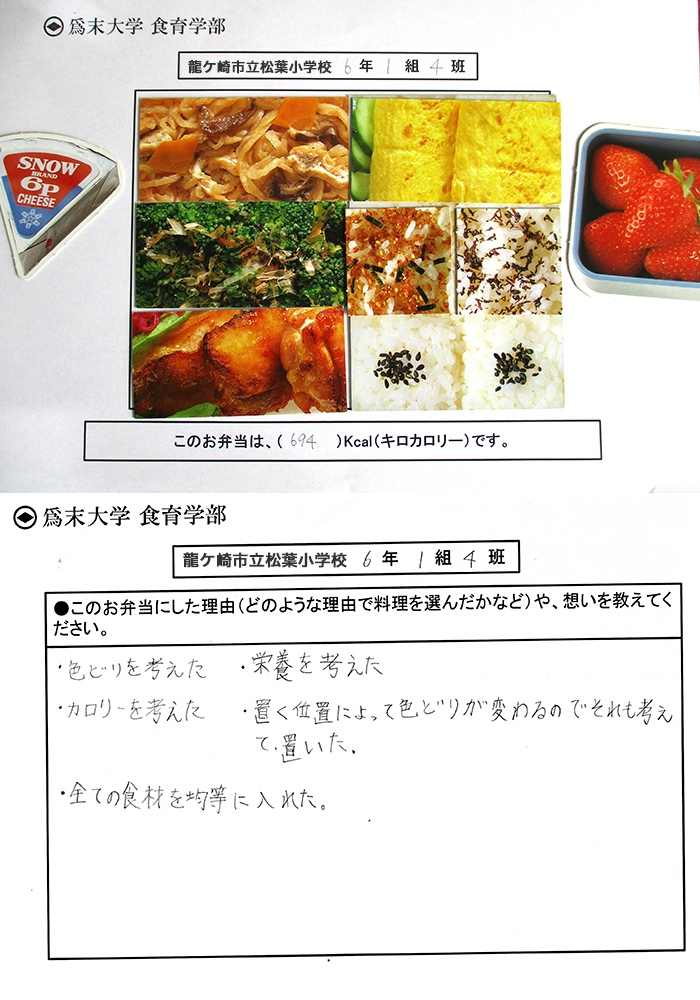 爲末大学 食育学部
龍ケ崎市立松葉小学校 6 年 1 組 4 班
SNOW
BRAND
6P
CHEESE
このお弁当は、( 694 )Kcal(キロカロリー)です。
爲末大学 食育学部
龍ケ崎市立松葉小学校 6 年 1 組 4 班
●このお弁当にした理由(どのような理由で料理を選んだかなど)や、想いを教えてく
ださい。
・色どりを考えた ・栄養を考えた
・カロリーを考えた ・置く位置によって色どりが変わるのでそれも考え
て、置いた。
・全ての食材を均等に入れた。